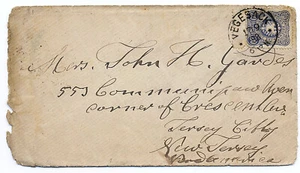 VEGESACK
Mrs. John H. Gardes
553 Communipaw Aven
corner of Crescent Av
Jersey City
New Jersey